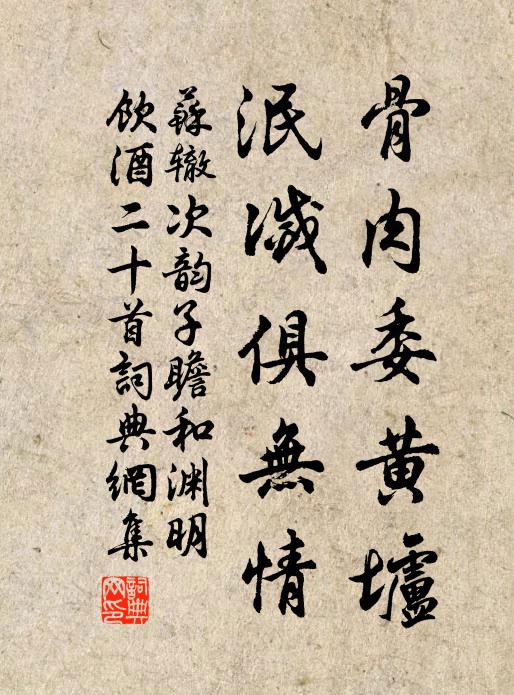 骨肉委黄壚
泯滅俱無情
蘇辙次韵子瞻和渊明
飲酒二十首詞典網集